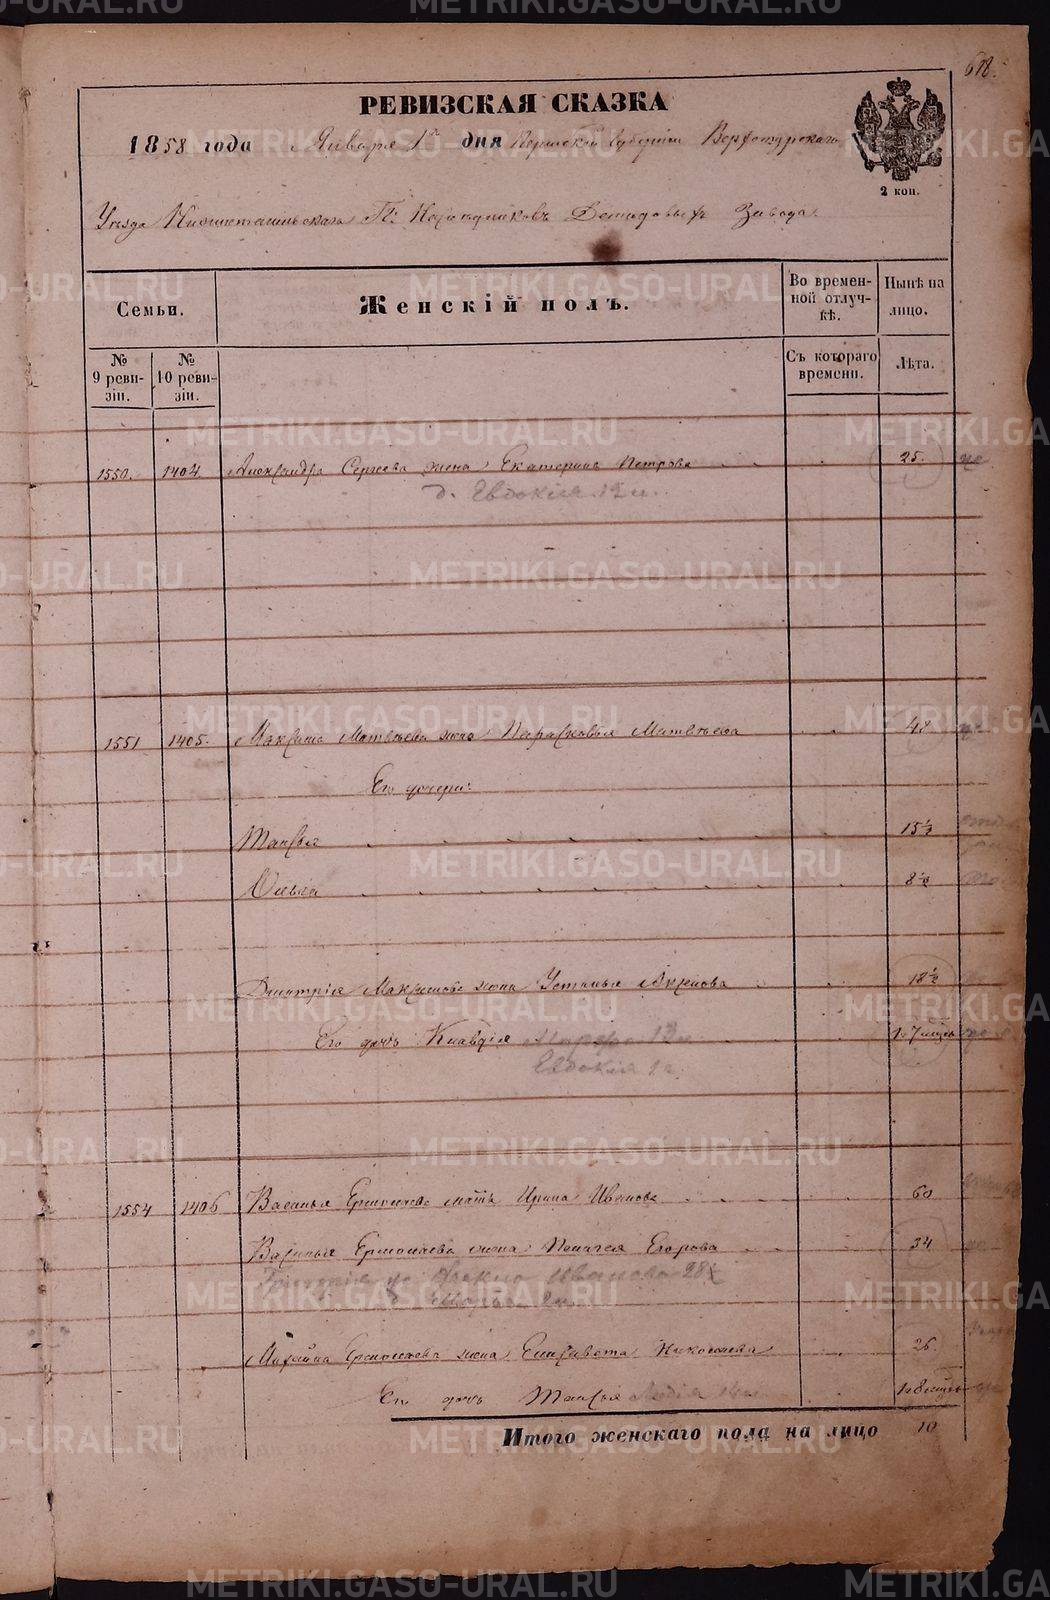 618.
РЕВИЗСКАЯ СКАЗКА
1858 года Января 1го дня Пермской Губернии Верхотурскаго
2 коп.
Уезда Нижнетагильскаго Гг. Наследниковъ Демидовыхъ Завода.
Семьи.
Женскій полъ.
Во времен-
ной отлуч-
кѣ.
Нынѣ на
лицо.
№
9 реви-
зіи.
№
10 реви-
зіи.
Съ котораго
времени.
Лѣта.
1550. 1404. Александра Сергеева жена Екатерина Петрова 25.
д. Евдокия
1551 1405. Максима Матвеева жена Парасковья Матвеева 48
Его дочери:
Таисья 15½
8½
Дмитрія Максимова жена Устинья 18½
Его дочь Клавдія 7 мцъ
Евдокия 1 г.
1554 1406 Василья Ермолаева мать Ирина Иванова 60
Василья Ермолаева жена Пелагея Егорова 34
Григория Фекла Иванова 28
Марья
Михайла Ермолаева жена Елизавета Николаева 26.
Его дочь Таисья Лидія 8 мцъ
Итого женскаго пола на лицо 10
METRIKI.GASO-URAL.RU